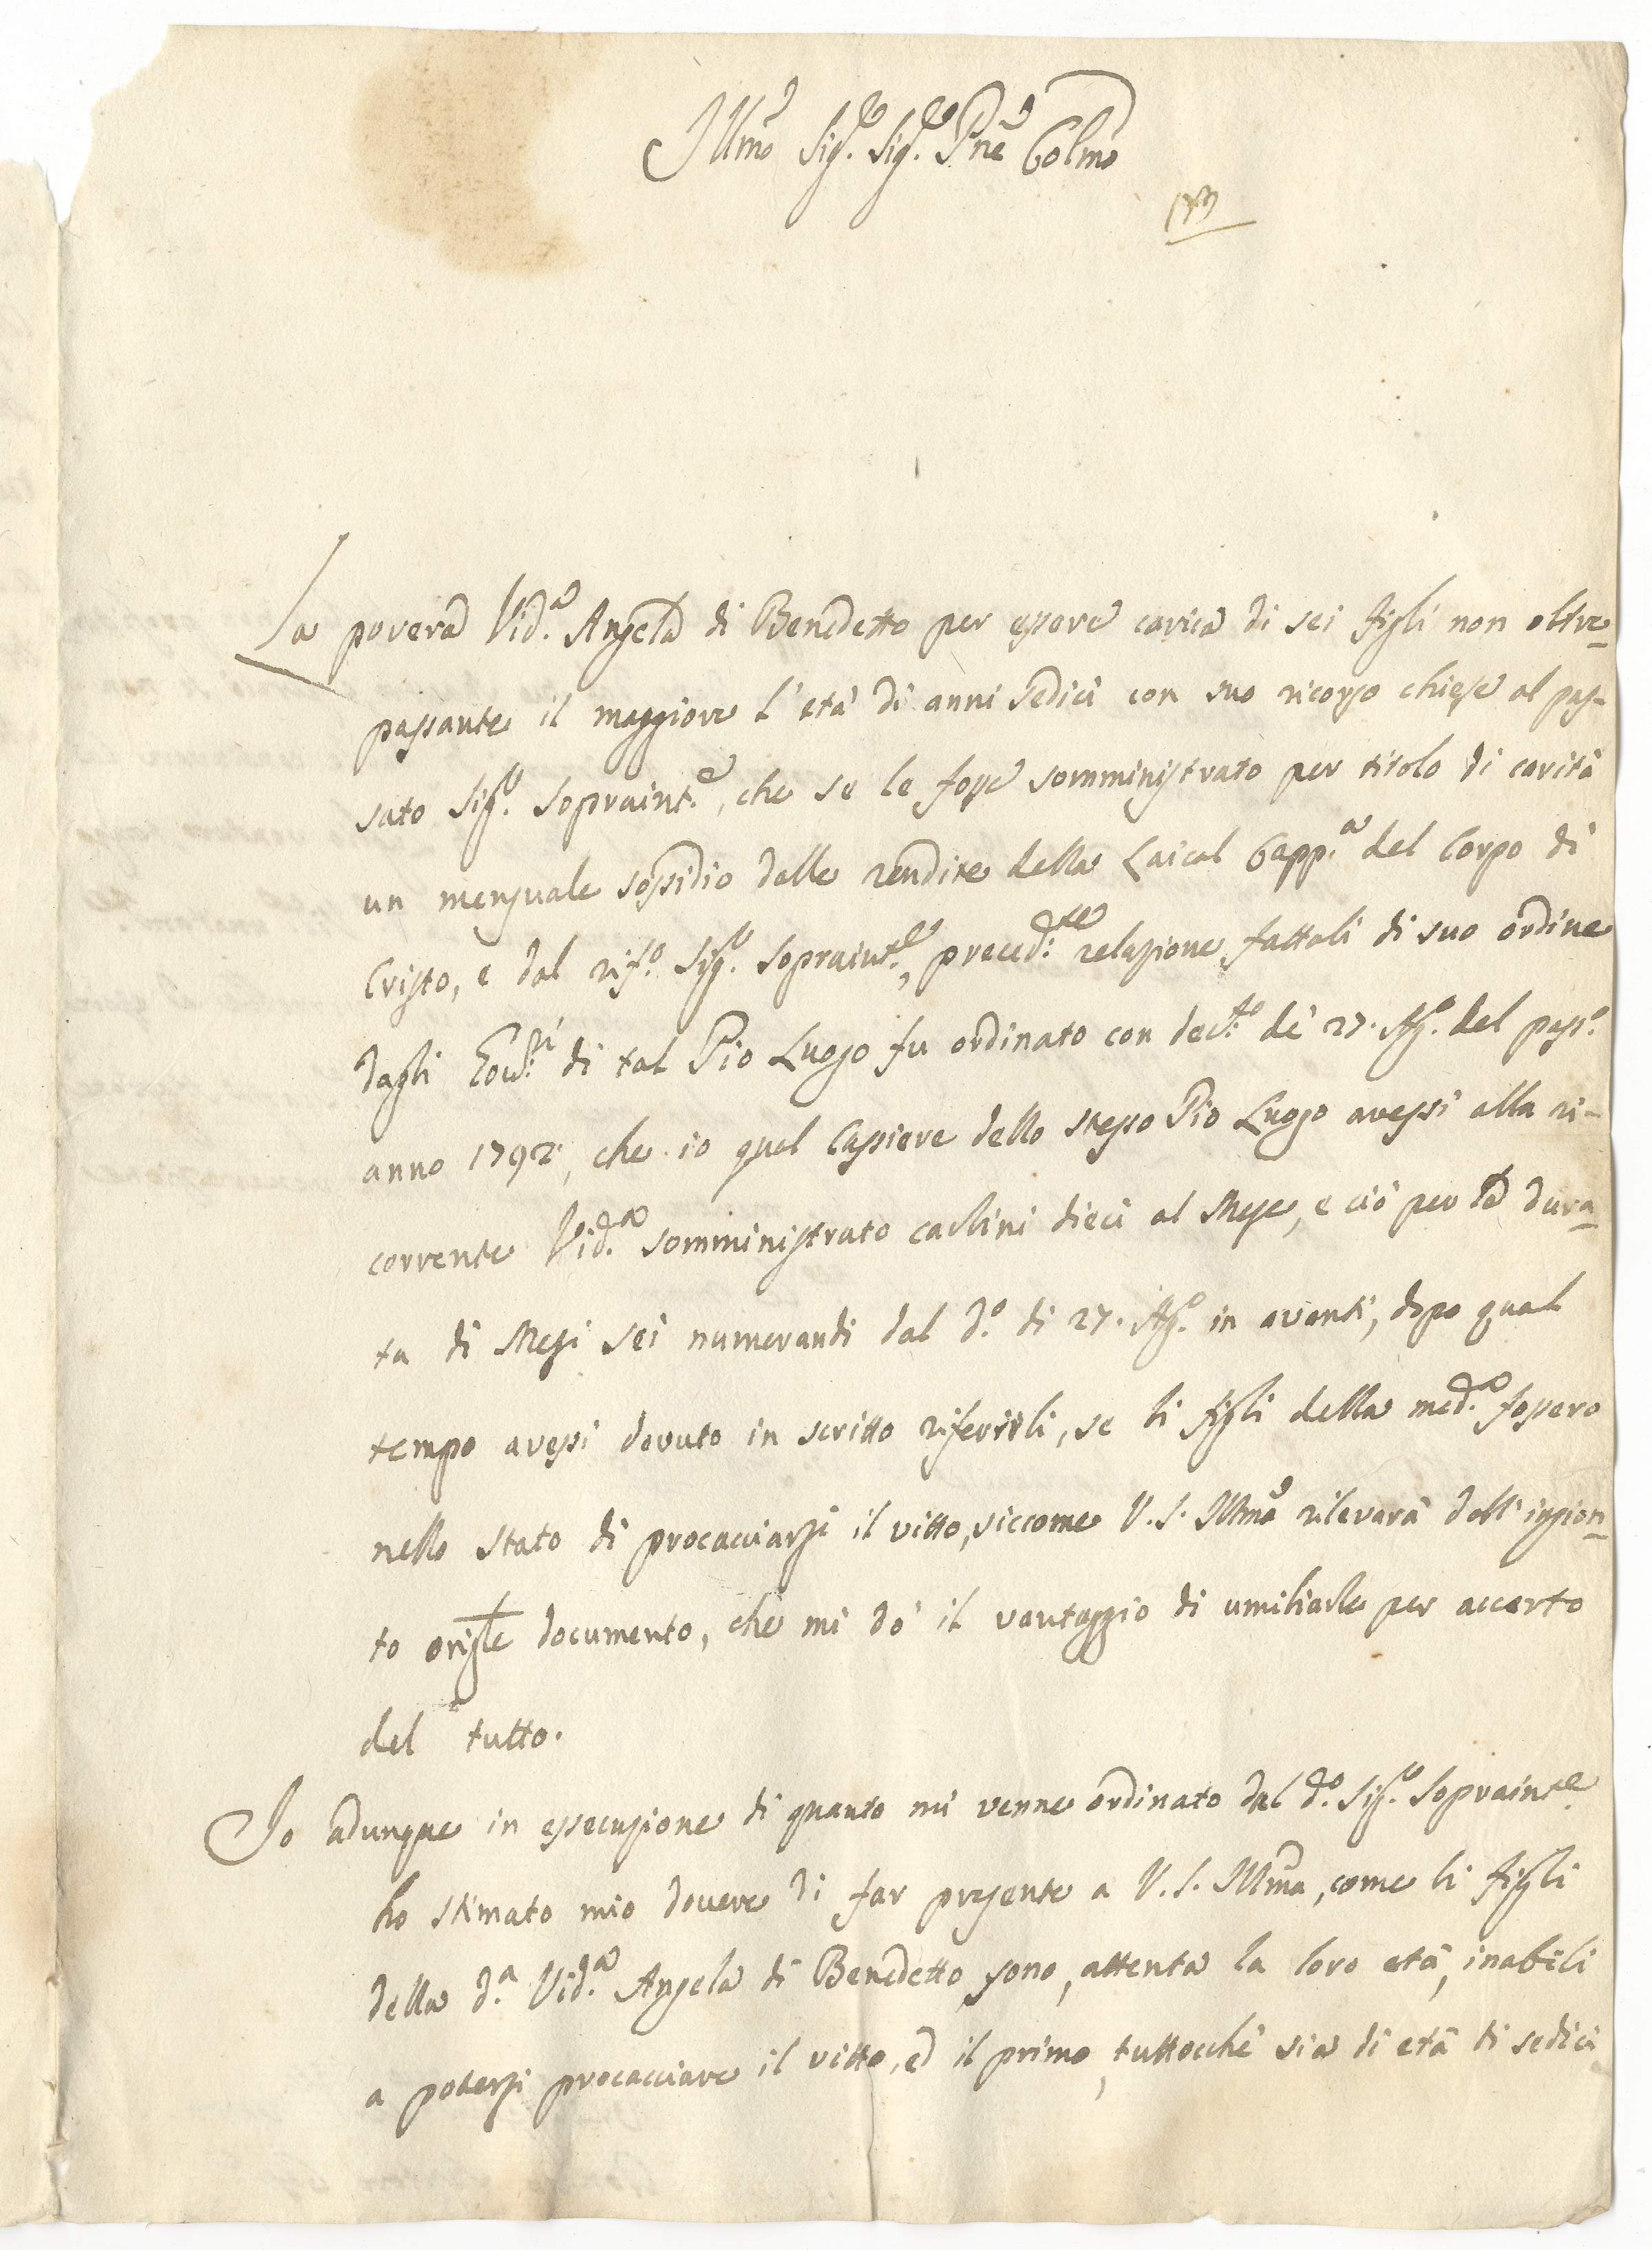 Illmo Sig.re Sig.re Pne Colmo
La povera Vid.a Angela di Benedetto per essere carica di sei figli non oltre-
passante il maggiore l'età di anni sedici con suo ricorso chiese al pas-
sato Sig.r Sopraint.e, che se le fosse somministrato per titolo di carità
un mensuale sossidio dalle rendite della Laical Capp.a del Corpo di
Cristo, e dal rif.o Sig.r Sopraint.e, preced.te relazione fattali di suo ordine
dagli di tal Pio Luogo fu ordinato con dec.to de' 27. Ag.o del pass.o
anno 1792, che io qual Cassiere dello stesso Pio Luogo avessi alla ri-
corrente Vid.a somministrato carlini dieci al Mese, e ciò per la dura-
ta di Mesi sei numerandi dal d.o dì 27. Ag.o in avanti, dopo qual
tempo avessi dovuto in scritto riferirli, se li figli della med.a fossero
nello stato di procacciarsi il vitto, siccome V. S. Illma rilevarà dall'ingion-
to origle documento, che mi dò il vantaggio di umiliarle per accerto
del tutto.
Io adunque in essecuzione di quanto mi venne ordinato dal d.o Sig.r Sopraint.e
ho stimato mio dovere di far presente a V. S. Illma, come li figli
della d.a Vid.a Angela di Benedetto sono, attenta la loro età, inabili
a potersi procacciare il vitto, ed il primo, tuttocchè sia di età di sedici